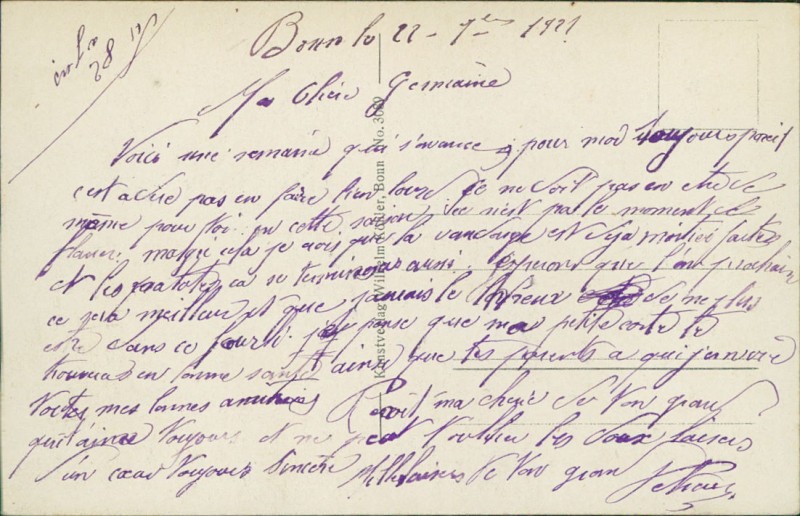 Bonn le 22 - 7bre 1921
Ma Chére Germaine
Voici une semaine qui s'avance, pour moi toujours pareil
c'est a dire pas en faire bien lourd Ce ne doit pas en etre de
même pour toi en cette saison ce n'est pas le moment de
flaner malgré cela je vois que la vandange est deja moitié faites
et les patates ça se terminera aussi. Esperons que l'an prochain
ce sera meilleur et que j'aurais le de ne plus
etre dans ce fourbi. je pense que ma petite carte te
trouvera en bonne santé ainsi que tes parents a qui j'envoie
toutes mes bonnes amitiés Reçoit ma cherie de ton gran
qui t'aime toujours et ne peut t'oublier les doux baisers
d'un cœur toujours sincère Mille baisers de ton gran
Kunstverlag Wilhelm Köhler, Bonn No. 3